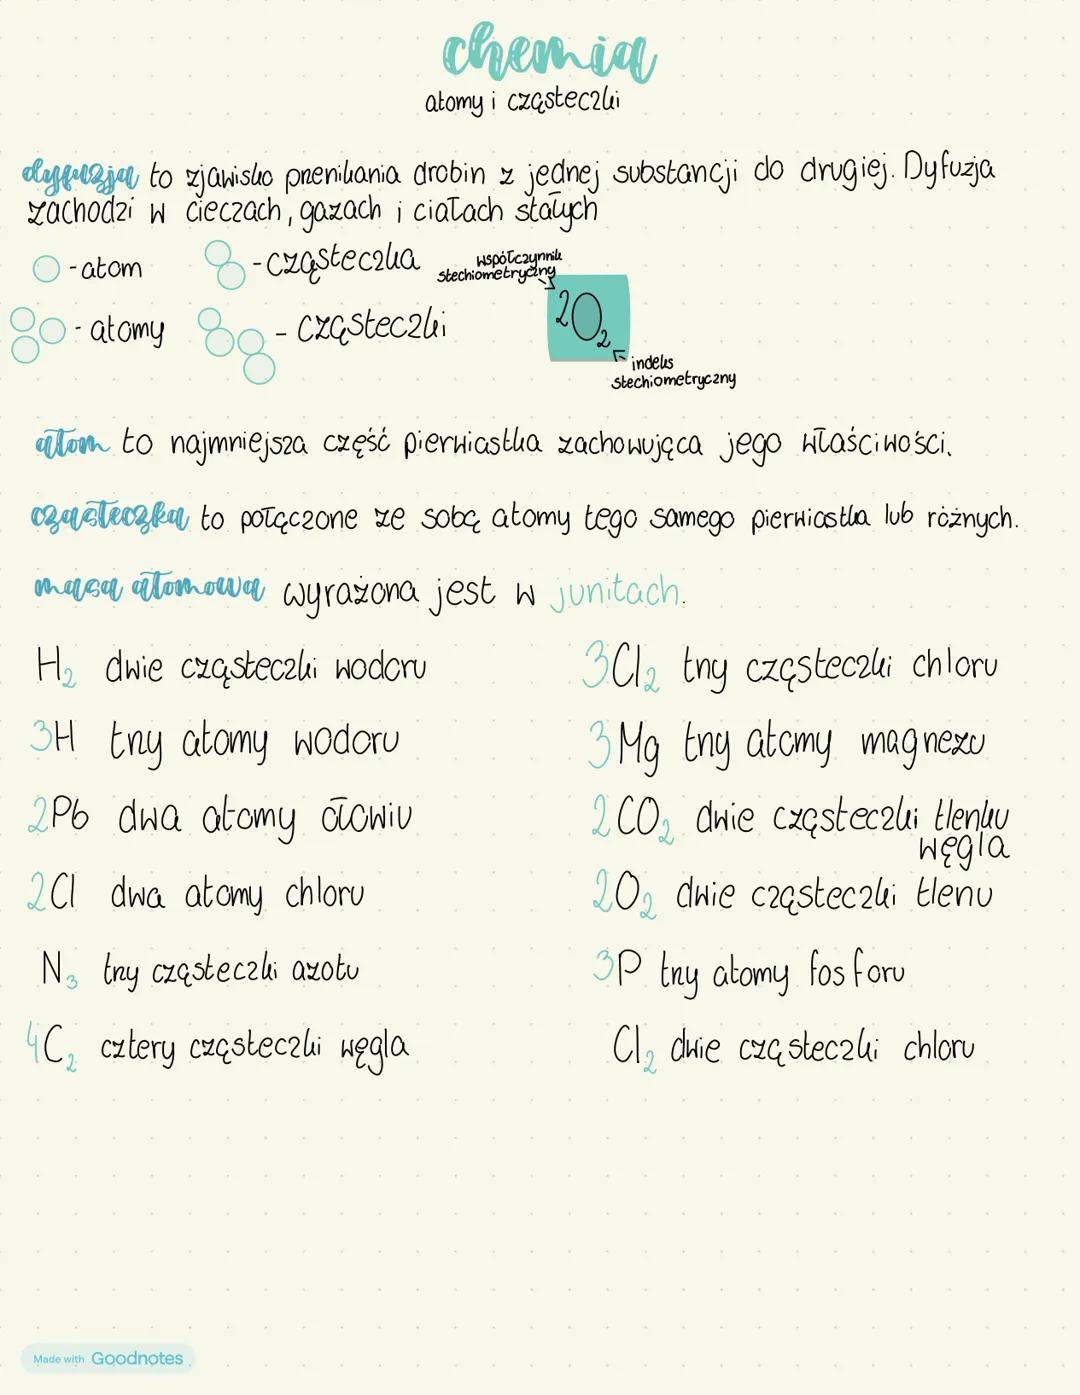 chemia
atomy i cząsteczki
dyfuzja to zjawisko przenikania drobin z jednej substancji do drugiej. Dyfuzja
zachodzi w cieczach, gazach i ciałach stałych
- atom
- cząsteczka
współczynnik
stechiometryczny
- atomy
- cząsteczki
2O₂
indeks
stechiometryczny
atom to najmniejsza część pierwiastka zachowująca jego właściwości.
cząsteczka to połączone ze sobą atomy tego samego pierwiastka lub różnych.
masa atomowa wyrażona jest w junitach.
H₂ dwie cząsteczki wodoru
3H trzy atomy wodoru
2Pb dwa atomy ołowiu
2Cl dwa atomy chloru
N₃ trzy cząsteczki azotu
4C₂ cztery cząsteczki węgla
3Cl₂ trzy cząsteczki chloru
3Mg trzy atomy magnezu
2CO₂ dwie cząsteczki tlenku
węgla
2O₂ dwie cząsteczki tlenu
3P trzy atomy fosforu
Cl₂ dwie cząsteczki chloru
Made with Goodnotes